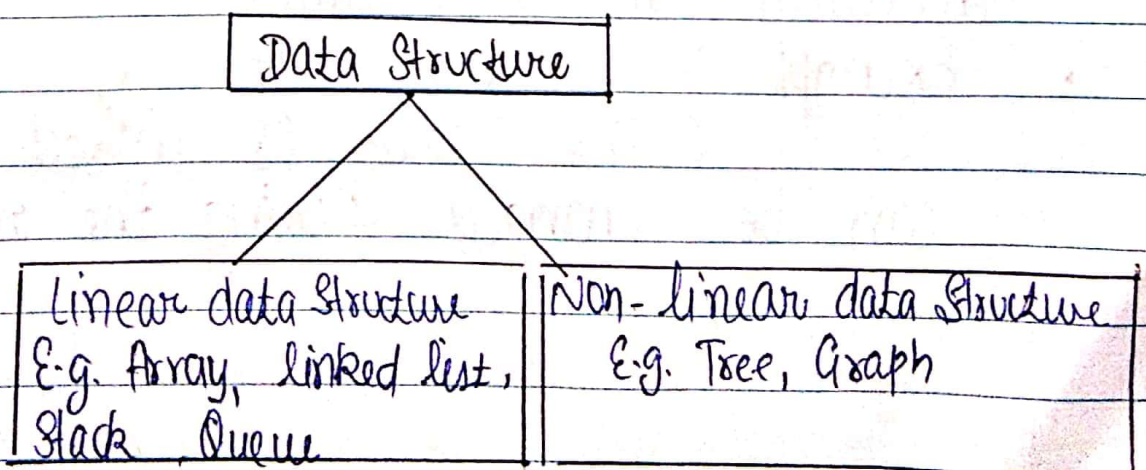 Data Structure
Linear data Structure
E.g. Array, linked list,
Stack, Queue
Non-linear data Structure
E.g. Tree, Graph